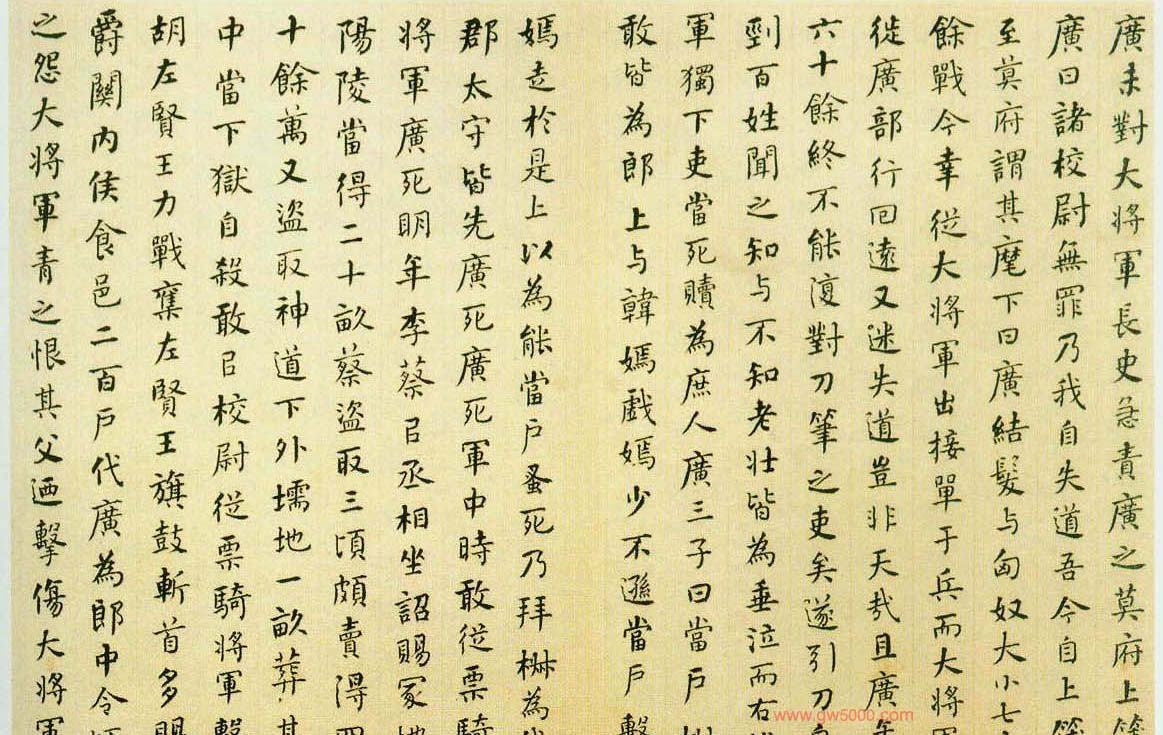 廣未對大將軍長史急責廣之莫府上
廣曰諸校尉無罪乃我自失道吾今自上
至莫府謂其麾下曰廣結髮与匈奴大小七
餘戰今幸從大將軍出接單于兵而大將
徙廣部行回遠又迷失道豈非天哉且廣年
六十餘終不能復對刀筆之吏矣遂引刀
剄百姓聞之知与不知老壯皆為垂泣而右
軍獨下吏當死贖為庶人廣三子曰當戶
敢皆為郎上与韓嫣戲嫣少不遜當戶擊
嫣走於是上以為能當戶蚤死乃拜椒為
郡太守皆先廣死廣死軍中時敢從票騎
將軍廣死明年李蔡㠯丞相坐詔賜冢地
陽陵當得二十畝蔡盜取三頃頗賣得四
十餘萬又盜取神道下外壖地一畝葬其
中當下獄自殺敢㠯校尉從票騎將軍擊
胡左賢王力戰奪左賢王旗鼓斬首多賜
爵關內侯食邑二百戶代廣為郎中令
之怨大將軍青之恨其父迺擊傷大將軍
www.gw5000.com